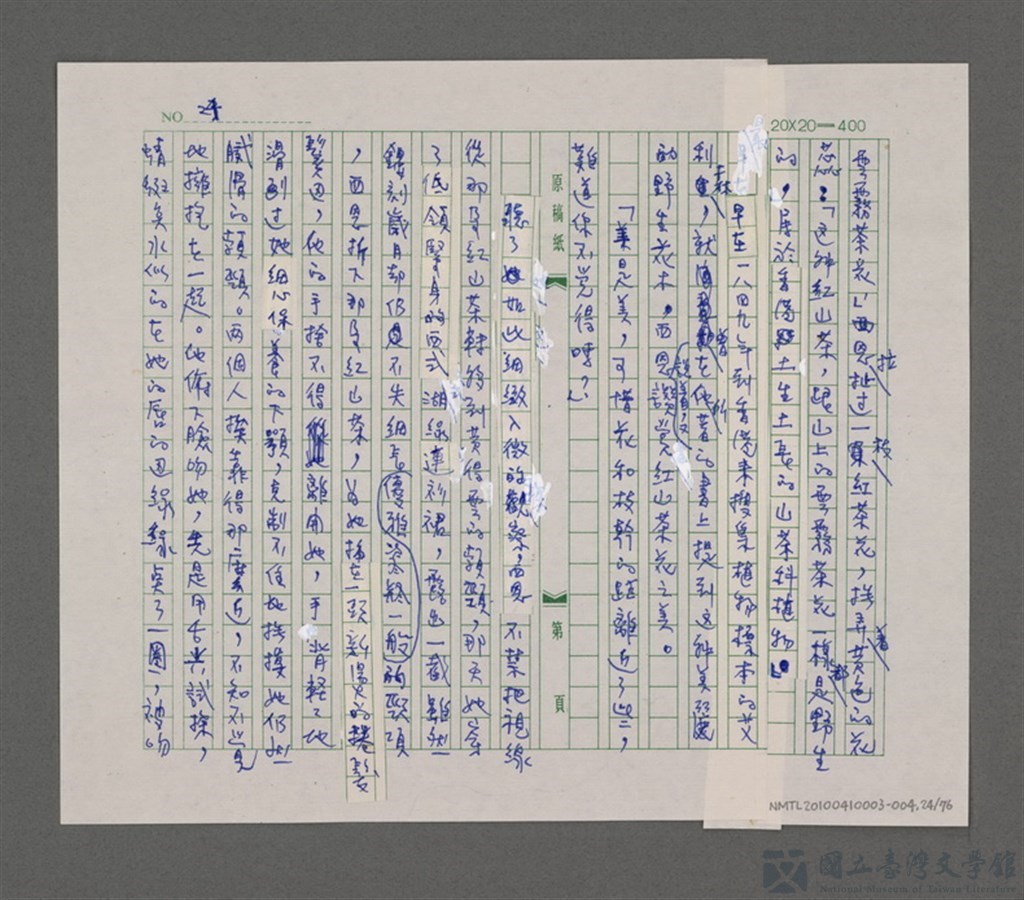 NO 24
20X20—400
雲霧茶花」西恩扯過一枝紅茶花,撫弄着黃色的花
蕊:「這種紅山茶,跟山上的雲霧茶花一樣,都是野生
的,屬於香港土生土長的山茶科植物。」
早在一八四九年到香港來搜集植物標本的艾
利森,就曾在他所著的書上提到这种美麗
的野生花木,西恩讚賞紅山茶花之美。
「美是美,可惜花和枝幹的距離近了些,
難道你不覺得嗎?」
原稿紙
第 頁
聽了她如此細緻入微的觀察,西恩不禁把視線
從那朵紅山茶轉移到黃得雲的頸頸,那天她穿
了低領緊身的西式湖綠連衫裙,露出一截雖然
鏤刻歲月却仍是不失細長優雅瓷瓶一般的頸項
,西恩折下那朵紅山茶,為她插在一頭新燙的捲髮
鬢邊,他的手捨不得離開她,手背輕輕地
滑割过她細心保養的下顎,克制不住地撫摸她仍然
膩滑的頸頸。兩個人挨靠得那麼近,不知不覺
地擁抱在一起。他俯下臉吻她,先是用舌尖試探,
蜻蜓點水似的在她的唇的边緣點了一圈,神吻
NMTL20100410003-004,24/76
國立臺灣文學館
National Museum of Taiwan Literature